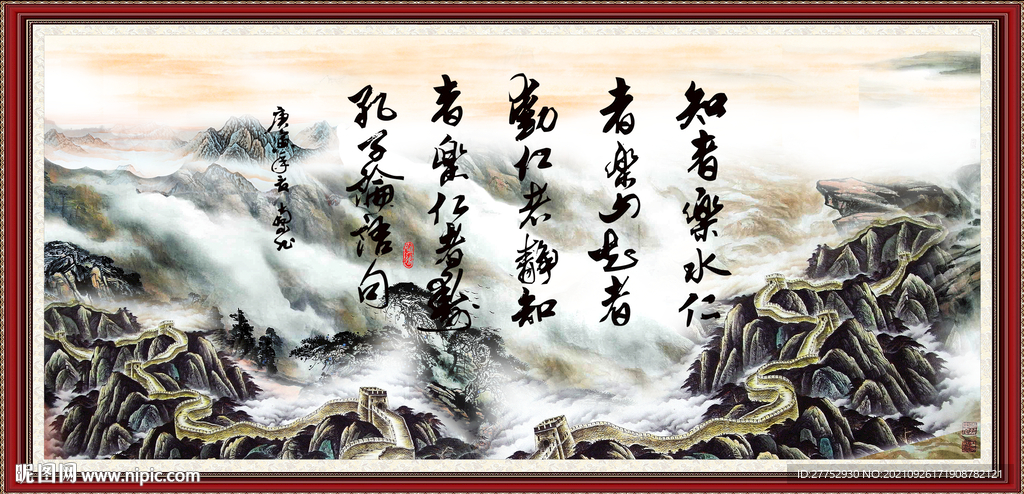 知者樂水仁
者樂山知者
動仁者靜知
者樂仁者壽
孔子論語句
庚寅年
昵图网 www.nipic.com
ID:27752930 NO:20210926171908782121